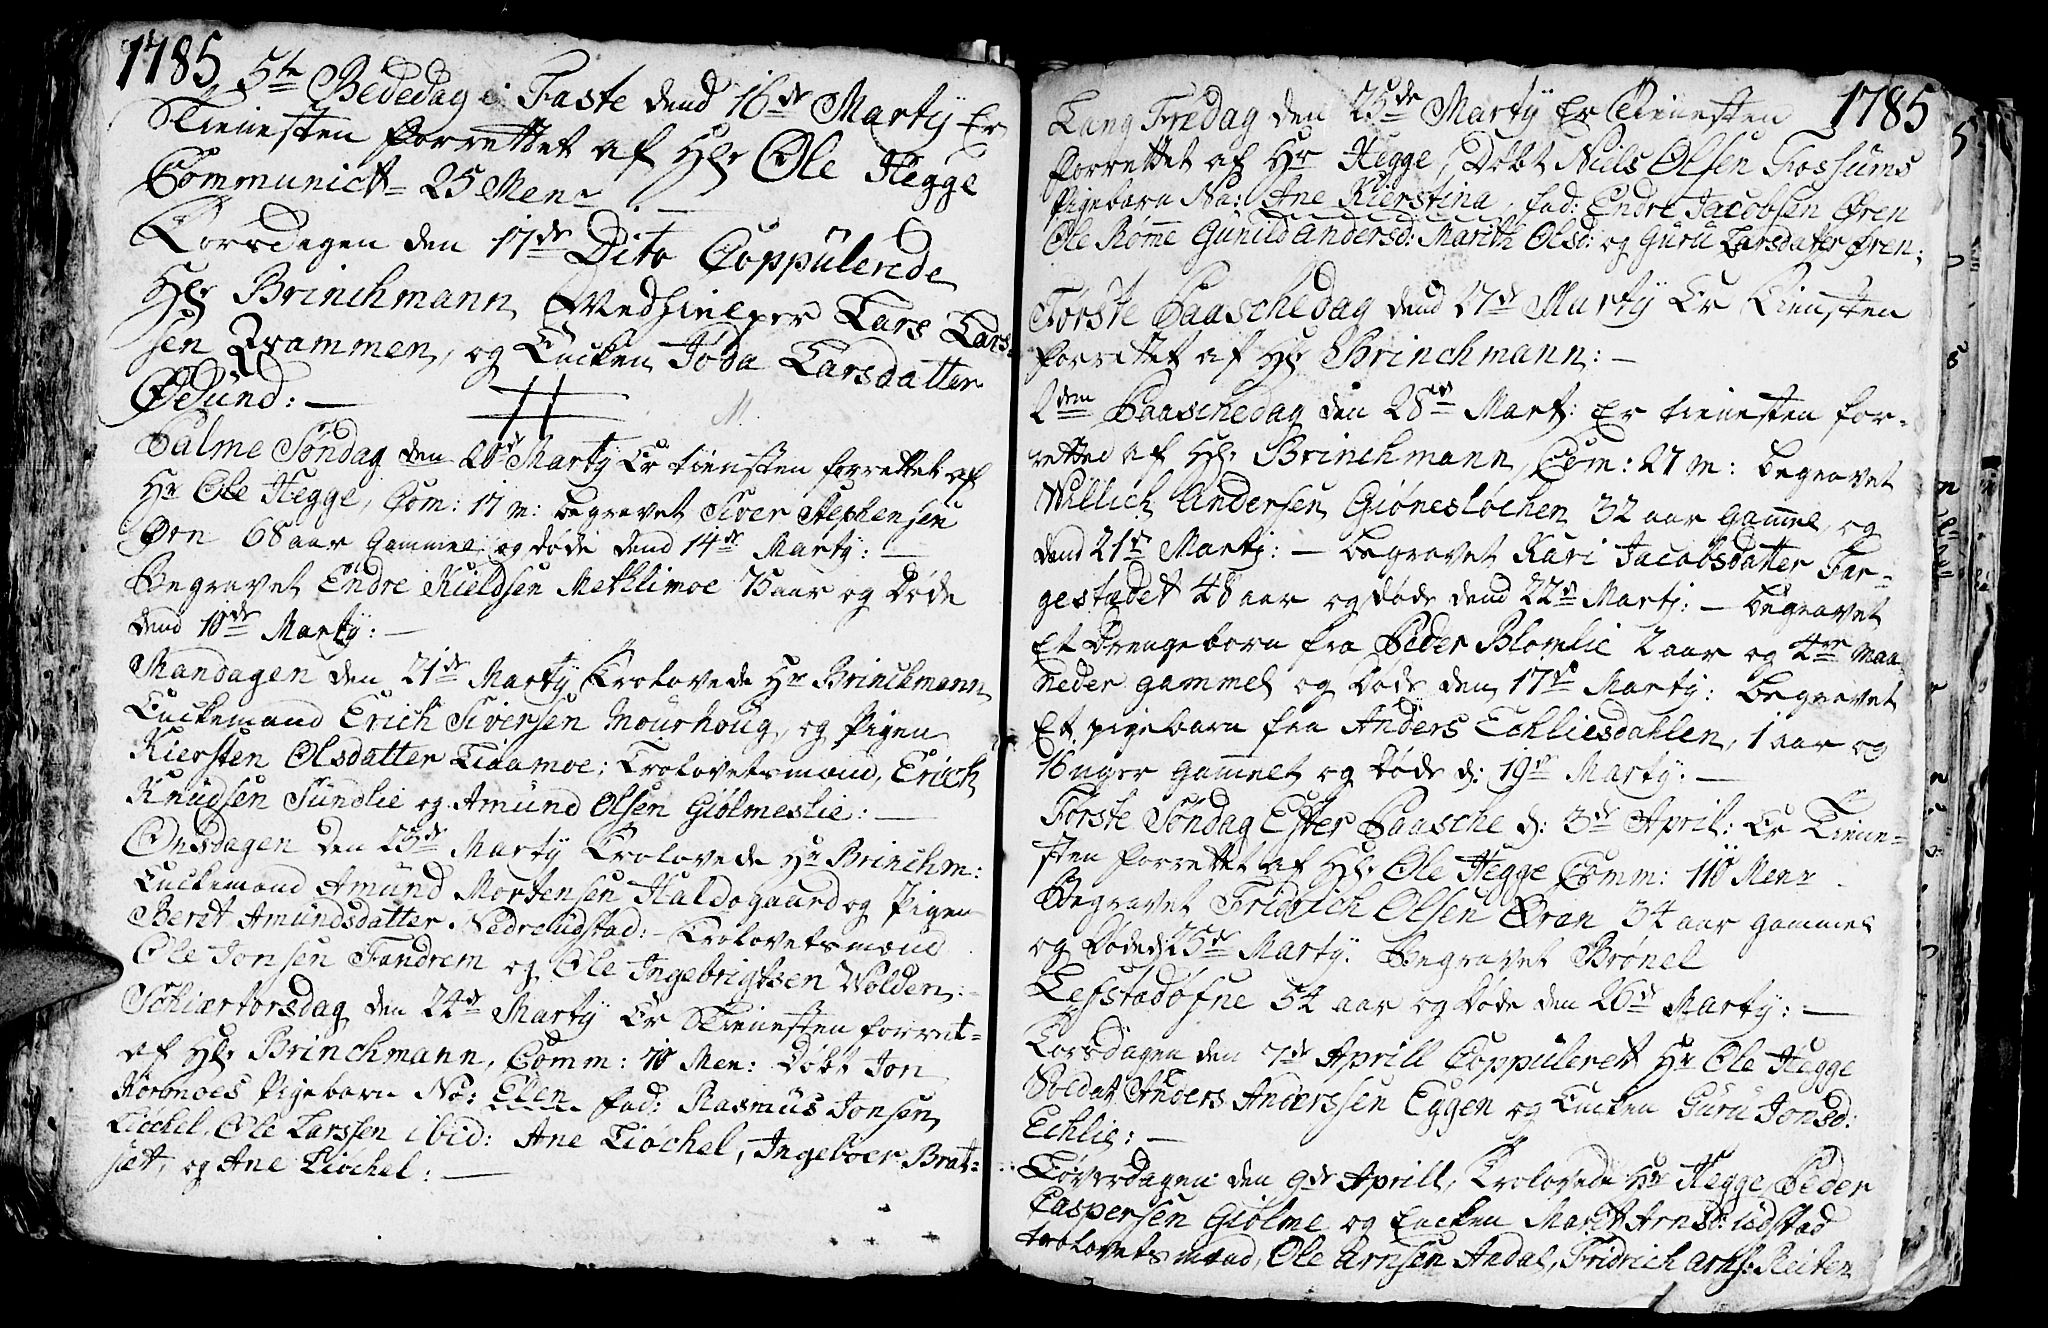 1785
5te Bededag i Faste dend 16de Martÿ Er
Tienesten forrettet af Hr Ole Hegge
Communict= 25 Men
Torsdagen den 17de Dito Coppülerede
Hr Brinchmann, Lars Lars=
sen Qvammen, og Encken Toda Larsdatter
Ødünd: —
Palme Søndag den 20de Martÿ Er tienesten forrettet af
Hr Ole Hegge, Com: 17 m: begravet Siver Stephensen
Ørn 68 aar Gammel og døde dend 14de Martÿ: —
Begravet Endre Kieldsen Mekhlimoe 75 aar og døde
dend 10de Martÿ: —
Mandagen den 21de Martÿ Trolovede Hr Brinckmann
Enckemand Erich Siversen Mourhoug, og Pigen
Kiersten Olsdatter Liaamoe: Trolovetsmænd, Erich
Knüdsen Sündlie og Amünd Olsen Giølmeslie: —
Onsdagen den 23de Martÿ Trolovede Hr Brinchm:
Enckemand Amünd Mortensen Haldogaard og Pigen
Beret Amündsdatter Nedreüdstad: Trolovetsmænd
Ole Jonsen Fandrem og Ole Ingebrigtsen Wolden: —
Schiærtorsdag den 24de Martÿ Er Tienesten forret=
af Hr Brinchmann, Comm: 70 Men: Døbt Jon
Pigebarn Na: Elen fad: Rasmüs Jonsen
Liøchel, Ole Larssen ibid: Ane Liøchel, Ingeboer Brat=
sæt, og Ane Liøchel: —
1785
Lang Fredag den 25de Martÿ Er Tienesten
forrettet af Hr Hegge, Døbt Niels Olsen Fossüms
Pigebarn Na: Ane Kierstina, fad: Endre Jacobsen Øren
Ole Rømme Günild Andersd: Marith Olsd: og Gürü Larsdatter Øren;
Første Paaschedag dend 27de Martÿ Er Tiensten
forrettet af Hr Brinchmann: —
2den Paaschedag den 28de Mart: Er tienesten for=
rettet af Hr Brinchmann, Com: 27 m: begravet
Willich Andersen Giønesløchen 32 aar gammel og
dend 21de Martj: — begravet Kari Jacobsdatter Far=
gestædet 48 aar og døde dend 22de Martj: — begravet
Et drengebarn fra Peder Blomlie 2 aar og 4re maa=
neder gammel og døde den 17de Martÿ: begravet
Et pigebarn fra Anders Echliesdahlen, 1 aar og
16 uger gammel og døde d: 19de Martÿ: —
Første Søndag Efter Paasche d: 3de April: Er Tiene=
sten forrettet af Hr Ole Hegge Comm: 110 Menr
Begravet Fridrich Olsen Øran 34 aar gammel
og døde d: 25de Martÿ: Begravet Brønel
Lefstadøfne 54 aar og døde den 26de Martÿ: —
Torsdagen den 7de Aprill Coppüleret Hr Ole Hegge
Soldat Anders Anderssen Eggen og Encken Gürü Jonsd:
Echlie: —
Løverdagen den 9de Aprill, Trolovede Hr Hegge Peder
Caspersen Giølme og Encken Marit Arnsd: üdstad
trolovetsmænd, Ole Arnsen Andal, Fridrich Arns: Reiten